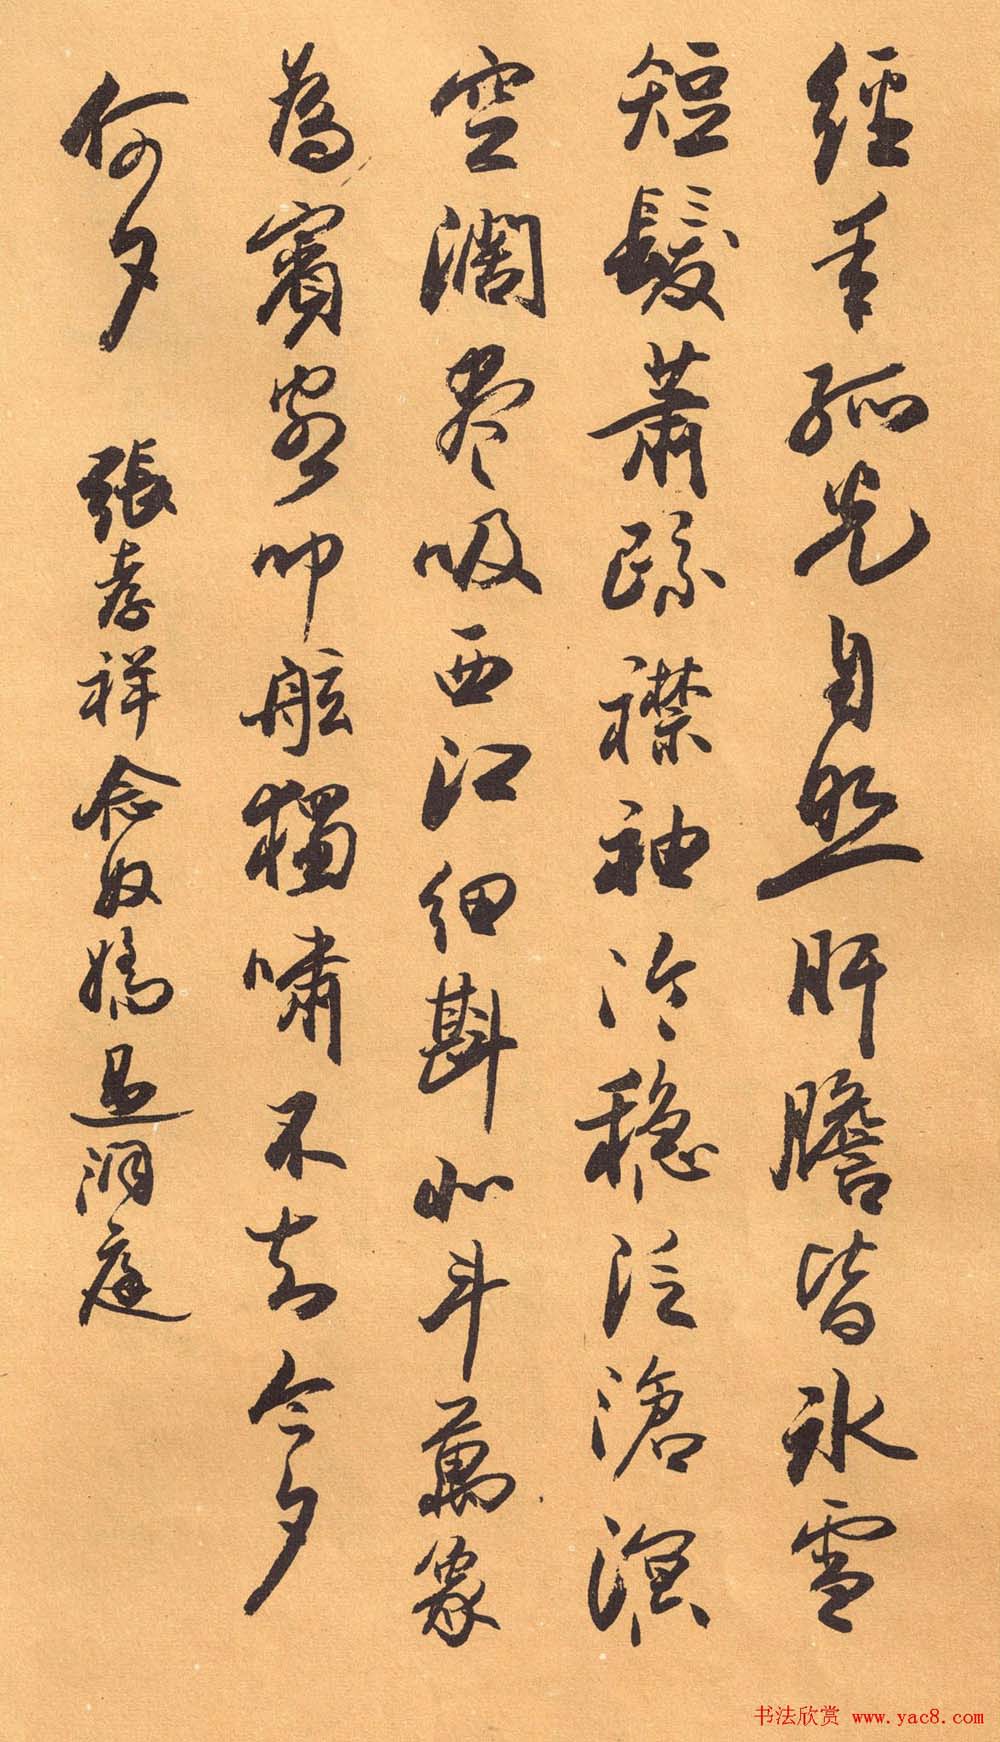 經年孤光自照肝膽皆冰雪
短髮蕭疏襟袖冷穩泛滄溟
空濶尽吸西江細斟北斗萬象
為賓客叩舷獨嘯不知今夕
何夕
張孝祥念奴嬌過洞庭
书法欣赏 www.yac8.com